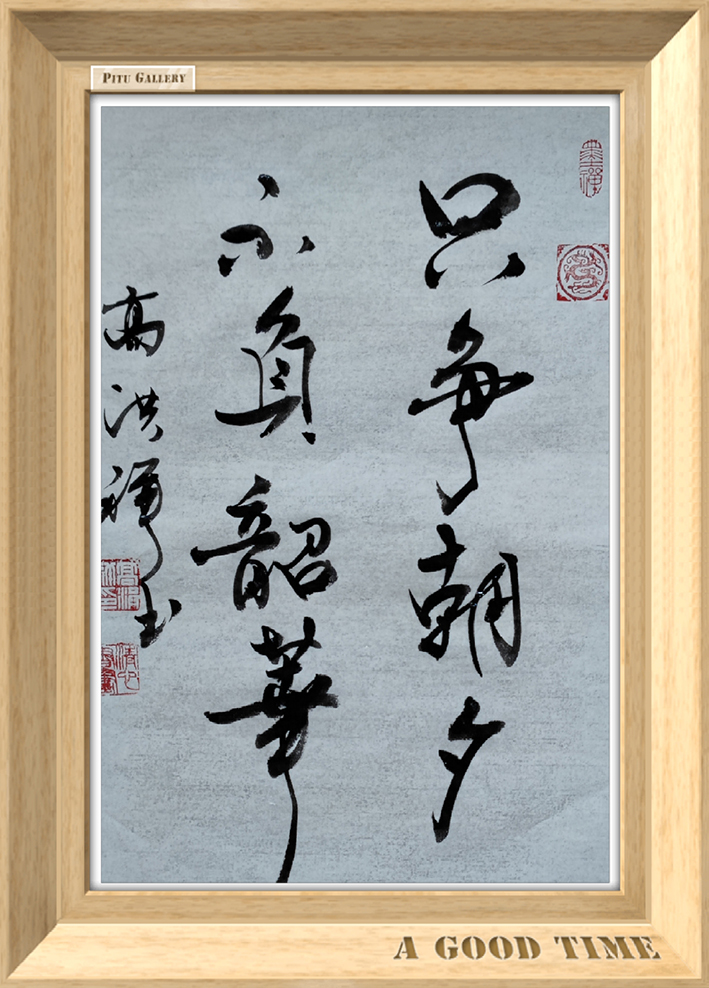 PITU GALLERY
墨禅
只争朝夕
不負韶華
高洪禪书
A GOOD TIME